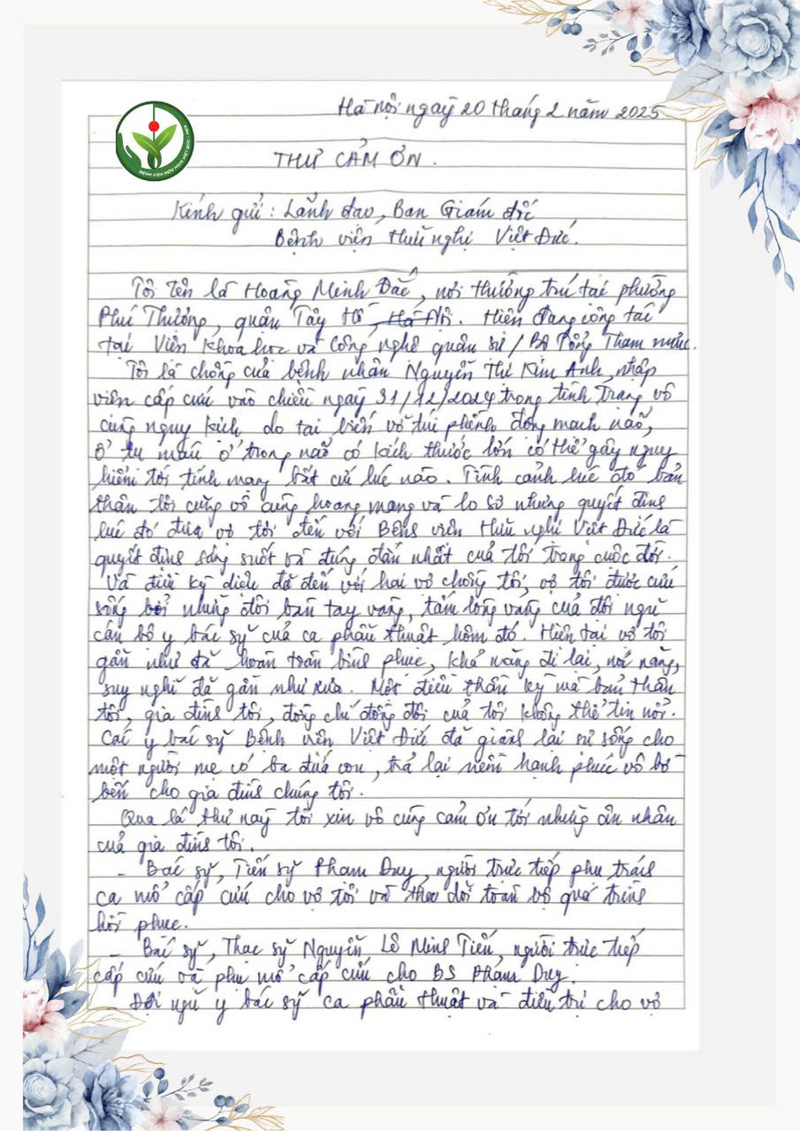 Hà nội ngày 20 tháng 2 năm 2025
BỆNH VIỆN HỮU NGHỊ VIỆT ĐỨC
THƯ CẢM ƠN.
Kính gửi: Lãnh đạo, Ban Giám đốc
Bệnh viện Hữu nghị Việt Đức.
Tôi tên là Hoàng Minh Đắc, nơi thường trú tại phường
Phú Thượng, quận Tây Hồ, Hà Nội. Hiện đang công tác
tại Viện Khoa học và Công nghệ quân sự / Bộ Tổng Tham mưu.
Tôi là chồng của bệnh nhân Nguyễn Thị Kim Anh, nhập
viện cấp cứu vào chiều ngày 31/12/2024 trong tình trạng vô
cùng nguy kịch do tai biến vỡ túi phình động mạch não,
ổ tụ máu ở trong não có kích thước lớn có thể gây nguy
hiểm tới tính mạng bất cứ lúc nào. Tình cảnh lúc đó bản
thân tôi cũng vô cùng hoang mang và lo sợ nhưng quyết định
lúc đó đưa vợ tôi đến với Bệnh viện Hữu nghị Việt Đức là
quyết định sáng suốt và đúng đắn nhất của tôi trong cuộc đời.
Và điều kỳ diệu đã đến với hai vợ chồng tôi, vợ tôi được cứu
sống bởi những đôi bàn tay vàng, tấm lòng vàng của đội ngũ
cán bộ y bác sỹ của ca phẫu thuật hôm đó. Hiện tại vợ tôi
gần như đã hoàn toàn bình phục, khả năng đi lại, nói năng,
suy nghĩ đã gần như xưa. Một điều thần kỳ mà bản thân
tôi, gia đình tôi, đồng chí đồng đội của tôi không thể tin nổi.
Các y bác sỹ Bệnh viện Việt Đức đã giành lại sự sống cho
một người mẹ có ba đứa con, trả lại niềm hạnh phúc vô bờ
bến cho gia đình chúng tôi.
Qua lá thư này tôi xin vô cùng cảm ơn tới những ân nhân
của gia đình tôi.
- Bác sỹ, Tiến sỹ Phạm Duy, người trực tiếp phụ trách
ca mổ cấp cứu cho vợ tôi và theo dõi toàn bộ quá trình
hồi phục.
- Bác sỹ, Thạc sỹ Nguyễn Lê Minh Tiến, người trực tiếp
cấp cứu và phụ mổ cấp cứu cho BS Phạm Duy.
Đội ngũ y bác sỹ ca phẫu thuật và điều trị cho vợ